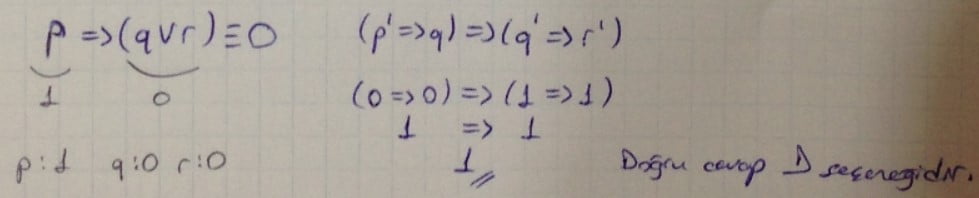 p => (q ∨ r) ≡ 0
1 0
p : 1 q : 0 r : 0
(p' => q) => (q' => r')
(0 => 0) => (1 => 1)
1 => 1
1
Doğru cevap D seçeneğidir.